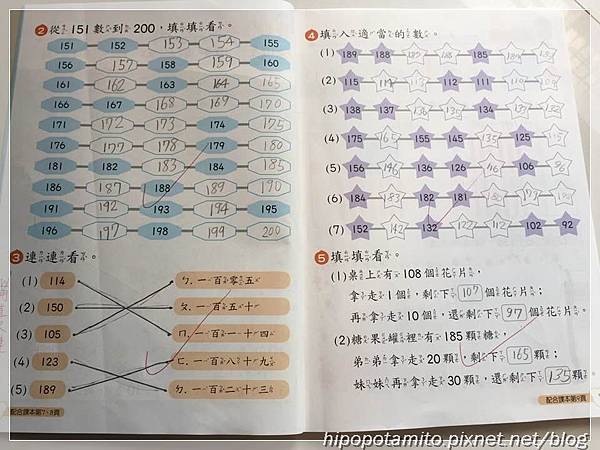 2 從 151 數到 200，填填看。
151 152 153 154 155
156 157 158 159 160
161 162 163 164 165
166 167 168 169 170
171 172 173 174 175
176 177 178 179 180
181 182 183 184 185
186 187 188 189 190
191 192 193 194 195
196 197 198 199 200
3 連連看。
(1) 114 ㄅ. 一百零五
(2) 150 ㄆ. 一百五十
(3) 105 ㄇ. 一百一十四
(4) 123 ㄈ. 一百八十九
(5) 189 ㄉ. 一百二十三
配合課本第7、8頁
4 填入適當的數。
(1) 189 188 185 184
(2) 115 114 113 112 111 110
(3) 138 137 136 135 134 133 132
(4) 175 165 155 145 135 125
(5) 156 146 136 126 116 106 96
(6) 184 183 182 181
(7) 152 142 132 122 112 102 92
5 填填看。
(1) 桌上有 108 個花片，
拿走 1 個，剩下 107 個花片；
再拿走 10 個，還剩下 97 個花片。
(2) 糖果罐裡有 185 顆糖，
弟弟拿走 20 顆，剩下 165 顆；
妹妹再拿走 30 顆，還剩下 135 顆
配合課本第9頁
hipopotamito.pixnet.net/blog